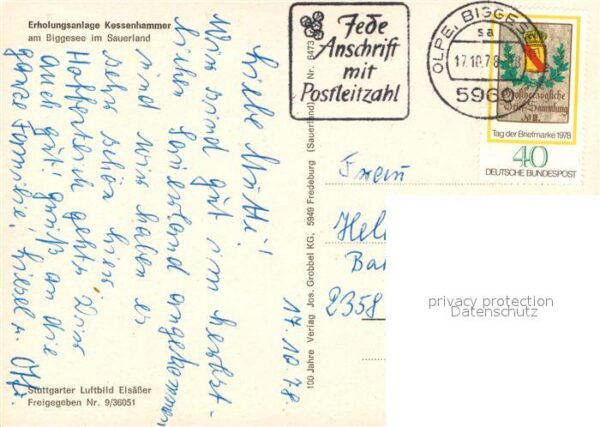 Erholungsanlage Kessenhammer
am Biggesee im Sauerland
Liebe Mutti!
Wir sind gut im herbst-
lichen Sauerland angekommen
und wir haben es
sehr schön hier.
Hoffentlich geht's Dir
auch gut! Gruß an die
ganze Familie! Liesel u. Otti.
17.10.78
Stuttgarter Luftbild Elsäßer
Freigegeben Nr. 9/36051
100 Jahre Verlag Jos. Grobbel KG, 5949 Fredeburg (Sauerland) Nr. 6473
Jede
Anschrift
mit
Postleitzahl
OLPE, BIGGE
sa
17.10.78
5960
Großherzogliche
Tag der Briefmarke 1978
40
DEUTSCHE BUNDESPOST
Frau
Hel
Ba
2358
privacy protection
Datenschutz